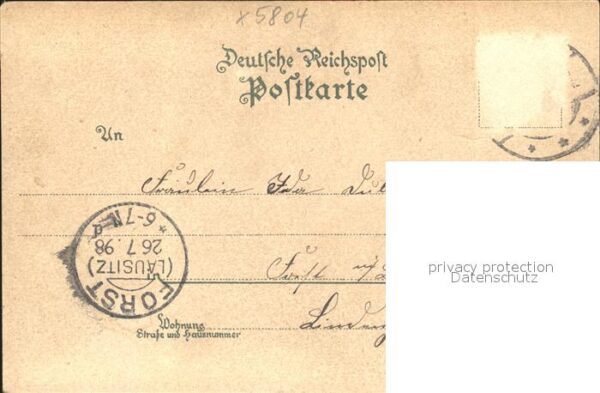 x 5804
Deutsche Reichspost
Postkarte
An
Fräulein Ida
* 6-7 N
26.7.98
(LAUSITZ)
FORST
Forst
privacy protection
Datenschutz
Wohnung
Straße und Hausnummer